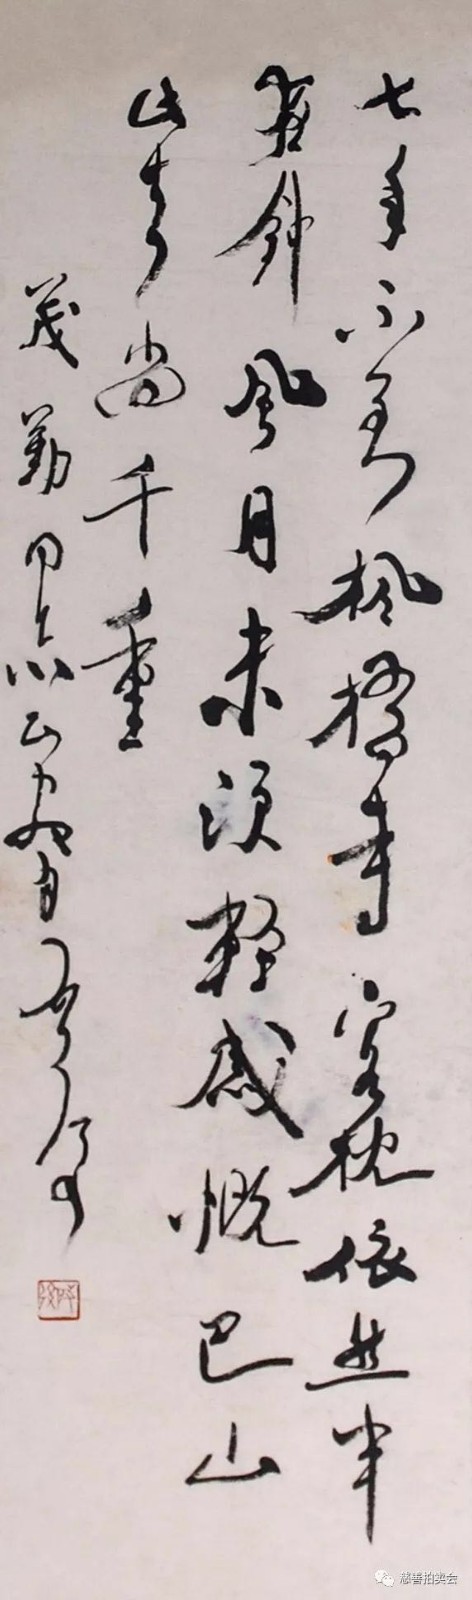 七年不到楓橋寺客枕依然半
夜鐘風月未須輕感慨巴山
此去尚千重
茂勤同志正
慈善拍卖会